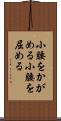 小腰をかが
める小腰を
屈める